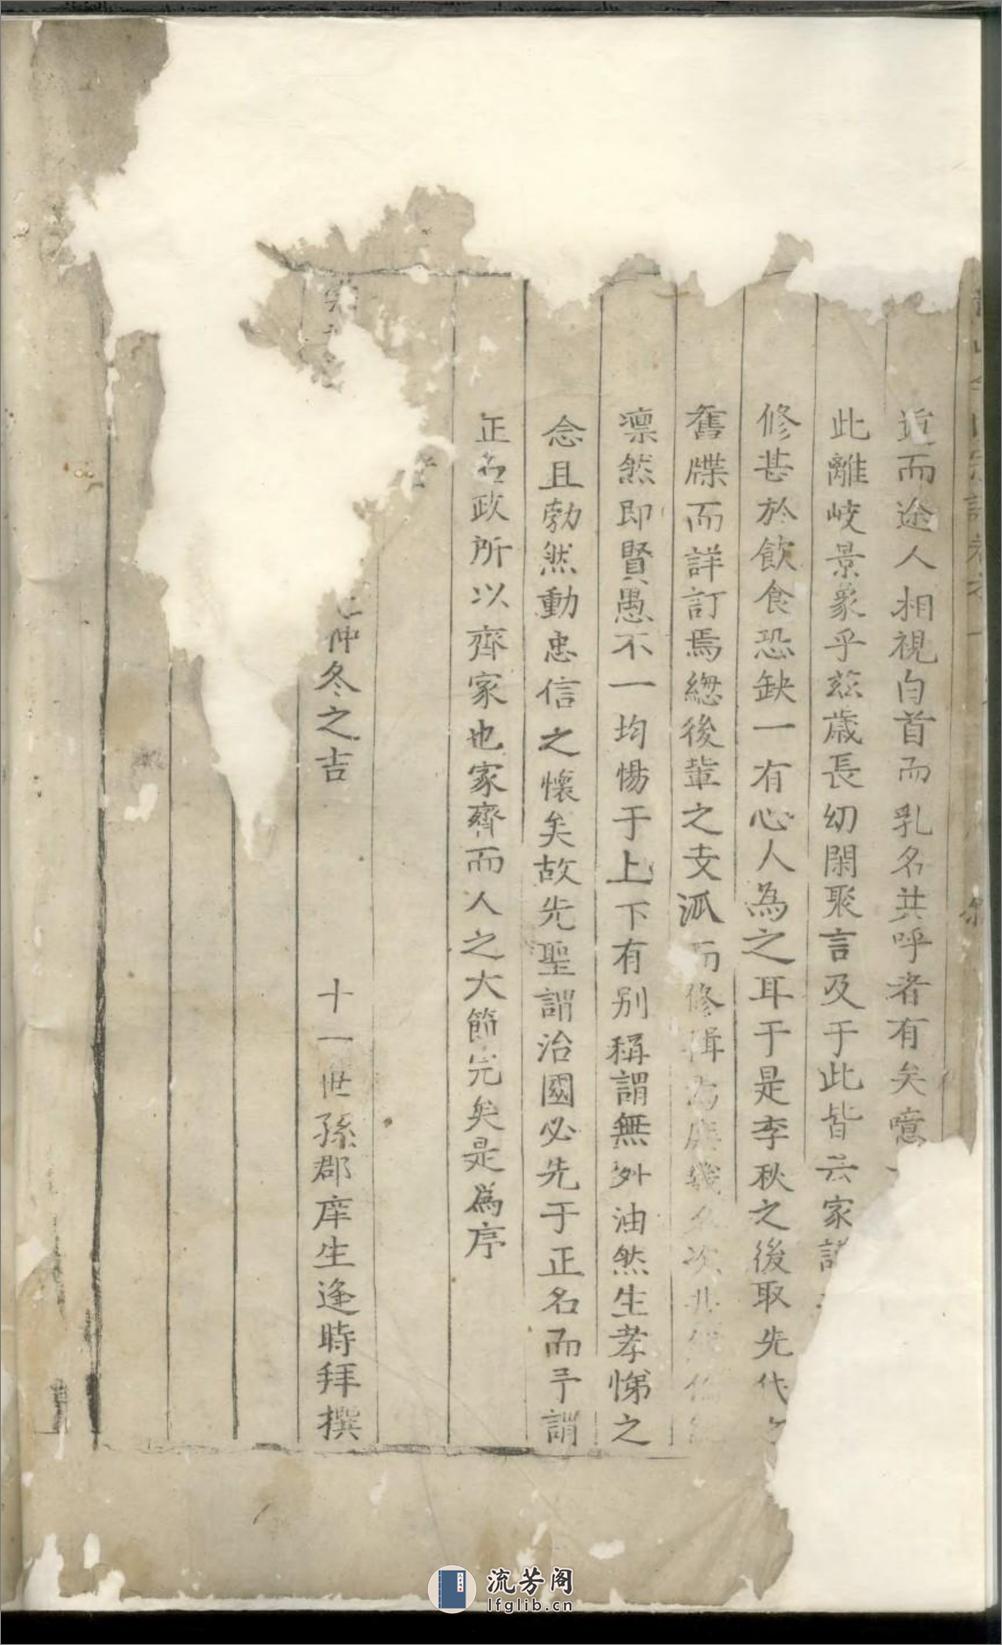 近而途人相視白首而乳名共呼者有矣噫
此離岐景象乎茲歲長幼閑聚言及于此皆云家譜
修甚於飲食恐缺一有心人為之耳于是李秋之後取先代之
舊牒而詳訂焉緫後輩之支派而修輯為庶幾名次
凛然即賢愚不一均惕于上下有别稱謂無外油然生孝悌之
念且勃然動忠信之懷矣故先聖謂治國必先于正名而予謂
正名政所以齊家也家齊而人之大節完矣是為序
仲冬之吉
十一世孫郡庠生逢時拜撰
流芳阁
lfglib.cn